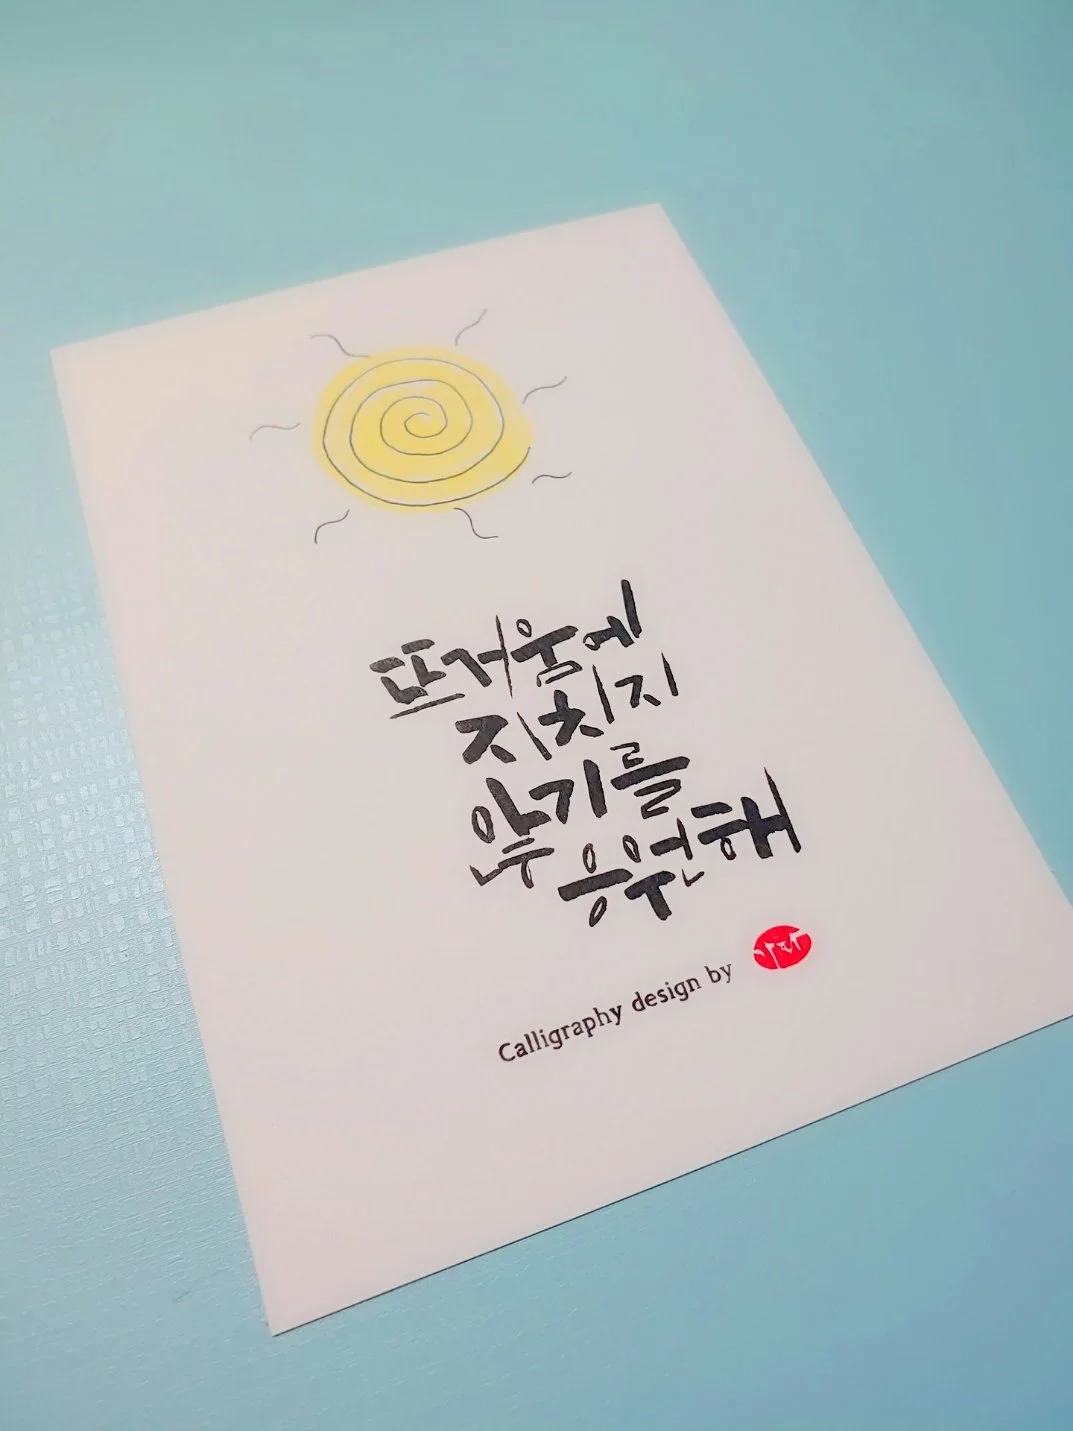 뜨거움에
지치지
않기를
응원해
Calligraphy design by